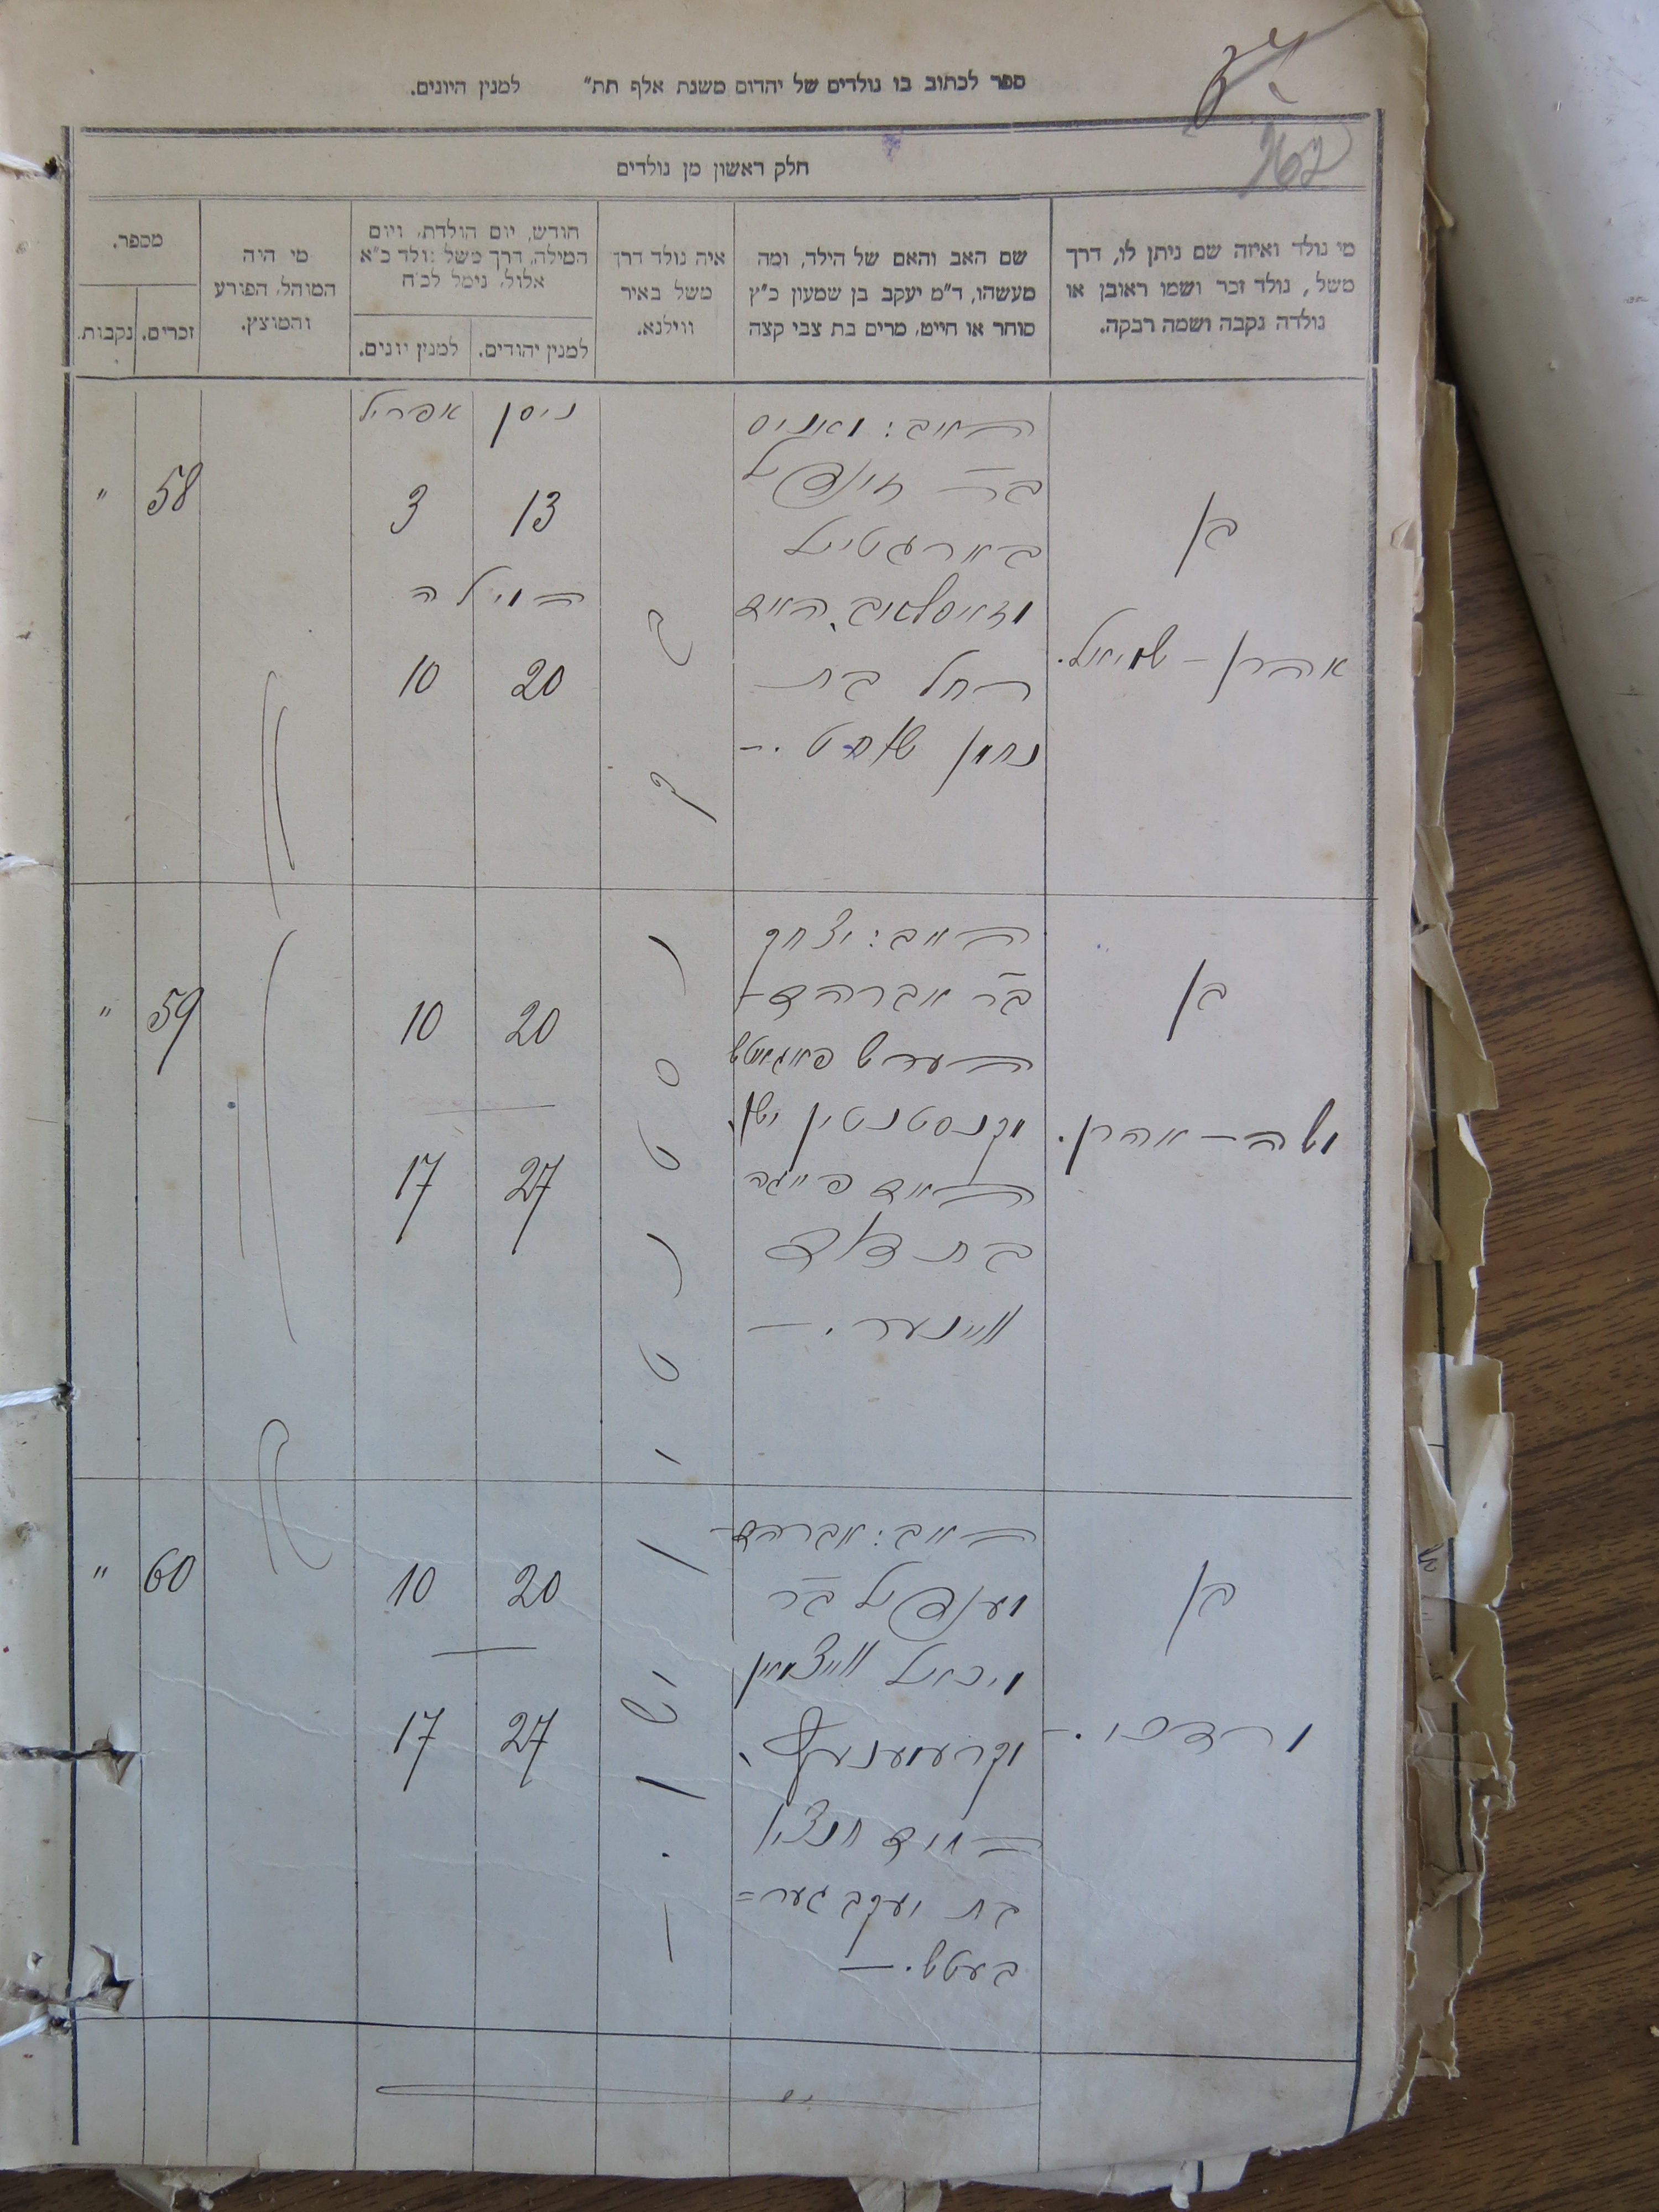 ספר לכתוב בו נולדים של יהדום משנת אלף תת״ למנין היונים.
262
חלק ראשון מן נולדים
מי נולד ואיזה שם ניתן לו, דרך
משל, נולד זכר ושמו ראובן או
נולדה נקבה ושמה רבקה.
שם האב והאם של הילד, ומה
מעשהו, ד״מ יעקב בן שמעון כ״ץ
סוחר או חייט, מרים בת צבי קצה
איה נולד דרך
משל באיר
ווילנא.
חודש, יום הולדת, ויום
המילה, דרך משל נולד כ״א
אלול, נימל לכ״ח
למנין יהודים.
למנין יונים.
מי היה
המוהל, הפורע
והמוצץ.
מספר.
זכרים.
נקבות.
בן
אהרן – שמואל.
האב:
בר זינדיל
בארגטיל
האם
רחל בת
נחמן
ניסן אפריל
13 3
המילה
20 10
58 "
בן
משה – אהרן.
האב: יצחק
בר אברהם –
הערש
וקנסטנטין ישן,
האם פייגה
בת דוד
וויינער. —
20 10
27 17
59 "
בן
מרדכי. –
האב: אברהם
מענדיל בר
מיכאל ווייצמאן
האם
בת יעקב גער=
בעטש. —
20 10
27 17
60 "